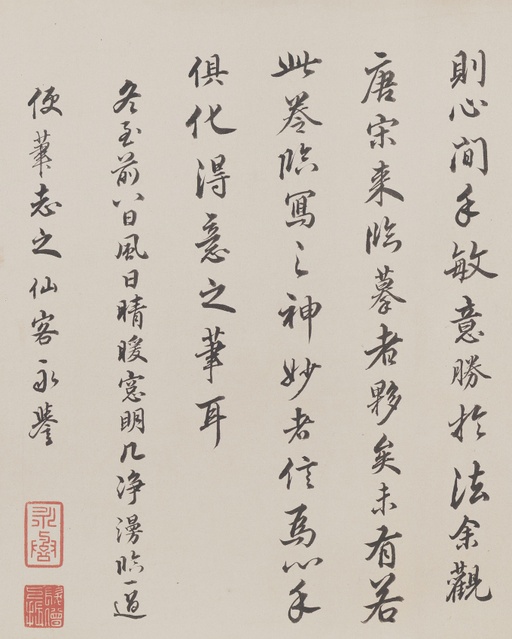 則心間手敏意勝於法余觀
唐宋來臨摹者夥矣未有若
此卷臨寫之神妙者信為心手
俱化得意之筆耳
冬至前八日風日晴暖窓明几净漫臨一過
便筆志之仙客永譽
永譽